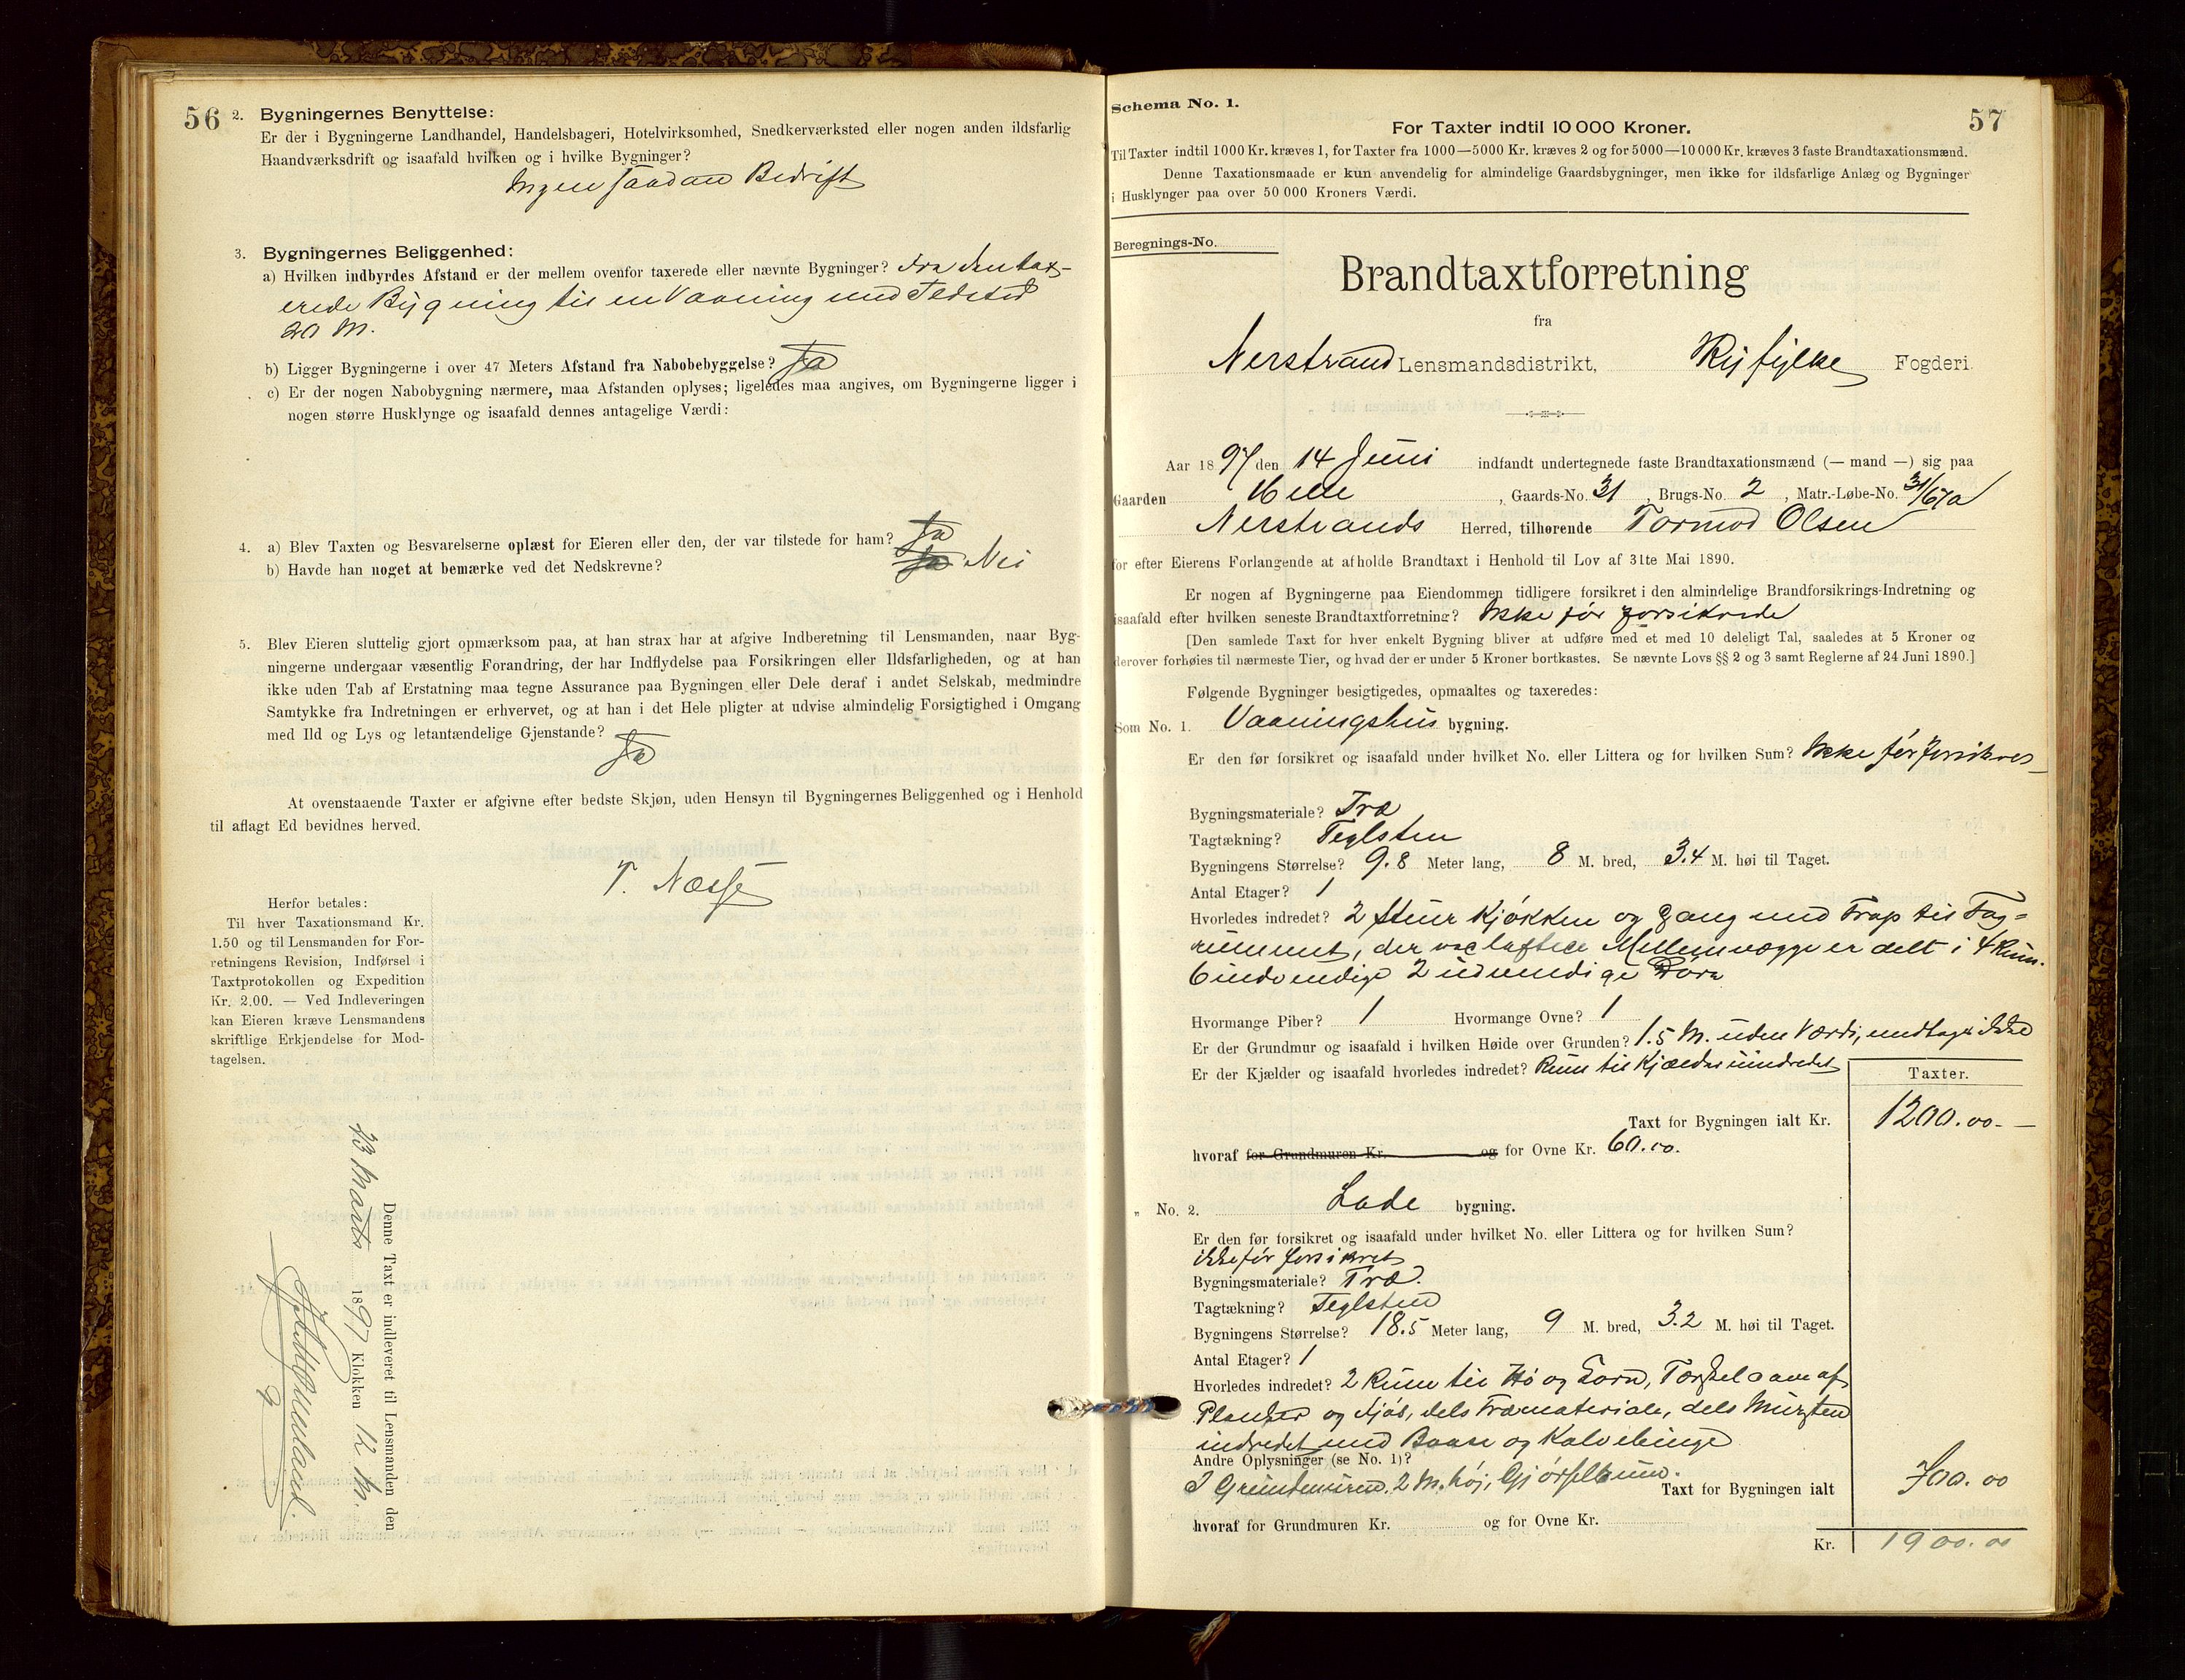 56
2. Bygningernes Benyttelse:
Er der i Bygningerne Landhandel, Handelsbageri, Hotelvirksomhed, Snedkerværksted eller nogen anden ildsfarlig
Haandværksdrift og isaafald hvilken og i hvilke Bygninger?
Ingen saadan Bedrift
3. Bygningernes Beliggenhed:
a) Hvilken indbyrdes Afstand er der mellem ovenfor taxerede eller nævnte Bygninger? Fra den tax-
erede Bygning til en Vaaning med Ildsted
20 M.
b) Ligger Bygningerne i over 47 Meters Afstand fra Nabobebyggelse? Ja
c) Er der nogen Nabobygning nærmere, maa Afstanden oplyses; ligeledes maa angives, om Bygningerne ligger i
nogen større Husklynge og isaafald dennes antagelige Værdi:
4. a) Blev Taxten og Besvarelserne oplæst for Eieren eller den, der var tilstede for ham? Ja
b) Havde han noget at bemærke ved det Nedskrevne? Ja Nei
5. Blev Eieren sluttelig gjort opmærksom paa, at han strax har at afgive Indberetning til Lensmanden, naar Byg-
ningerne undergaar væsentlig Forandring, der har Indflydelse paa Forsikringen eller Ildsfarligheden, og at han
ikke uden Tab af Erstatning maa tegne Assurance paa Bygningen eller Dele deraf i andet Selskab, medmindre
Samtykke fra Indretningen er erhvervet, og at han i det Hele pligter at udvise almindelig Forsigtighed i Omgang
med Ild og Lys og letantændelige Gjenstande?
Ja
At ovenstaaende Taxter er afgivne efter bedste Skjøn, uden Hensyn til Bygningernes Beliggenhed og i Henhold
til aflagt Ed bevidnes herved.
T. Næsse
Herfor betales:
Til hver Taxationsmand Kr.
1.50 og til Lensmanden for For-
retningens Revision, Indførsel i
Taxtprotokollen og Expedition
Kr. 2.00. — Ved Indleveringen
kan Eieren kræve Lensmandens
skriftlige Erkjendelse for Mod-
tagelsen.
Denne Taxt er indleveret til Lensmanden den
23 Marts 1897 Klokken 12 M.
Schema No. 1.
57
For Taxter indtil 10 000 Kroner.
Til Taxter indtil 1000 Kr. kræves 1, for Taxter fra 1000—5000 Kr. kræves 2 og for 5000—10 000 Kr. kræves 3 faste Brandtaxationsmænd.
Denne Taxationsmaade er kun anvendelig for almindelige Gaardsbygninger, men ikke for ildsfarlige Anlæg og Bygninger
i Husklynger paa over 50 000 Kroners Værdi.
Beregnings-No.
Brandtaxtforretning
fra
Nerstrand Lensmandsdistrikt, Ryfylke Fogderi
Aar 1897 den 14 Juni indfandt undertegnede faste Brandtaxationsmænd (— mand —) sig paa
Gaarden Helle, Gaards-No. 31, Brugs-No. 2, Matr.-Løbe-No. 31/67a
Nerstrands Herred, tilhørende Tormod Olsen
for efter Eierens Forlangende at afholde Brandtaxt i Henhold til Lov af 31te Mai 1890.
Er nogen af Bygningerne paa Eiendommen tidligere forsikret i den almindelige Brandforsikrings-Indretning og
isaafald efter hvilken seneste Brandtaxtforretning? Ikke før forsikrede
[Den samlede Taxt for hver enkelt Bygning bliver at udføre med et med 10 deleligt Tal, saaledes at 5 Kroner og
derover forhøies til nærmeste Tier, og hvad der er under 5 Kroner bortkastes. Se nævnte Lovs §§ 2 og 3 samt Reglerne af 24 Juni 1890.]
Følgende Bygninger besigtigedes, opmaaltes og taxeredes:
Som No. 1. Vaaningshus bygning.
Er den før forsikret og isaafald under hvilket No. eller Littera og for hvilken Sum? Ikke før forsikret
Bygningsmateriale? Træ
Tagtækning? Teglsten
Bygningens Størrelse? 9.8 Meter lang, 8 M. bred, 3.4 M. høi til Taget.
Antal Etager? 1
Hvorledes indredet? 2 Stuer Kjøkken og Gang med Trap til Tag=
rummet, der ved laftede Mellemvægge er delt i 4 Rum.
6 indvendige 2 udvendige Døre
Hvormange Piber? 1 Hvormange Ovne? 1
Er der Grundmur og isaafald i hvilken Høide over Grunden? 1.5 M. uden Værdi, medtages ikke
Er der Kjælder og isaafald hvorledes indredet? Rum til Kjælder uindredet
Taxter.
Taxt for Bygningen ialt Kr. 1200.00
hvoraf for Grundmuren Kr. og for Ovne Kr. 60.00.
„ No. 2. Lade bygning.
Er den før forsikret og isaafald under hvilket No. eller Littera og for hvilken Sum?
ikke før forsikret
Bygningsmateriale? Træ.
Tagtækning? Teglsten
Bygningens Størrelse? 18.5 Meter lang, 9 M. bred, 3.2 M. høi til Taget.
Antal Etager? 1
Hvorledes indredet? 2 Rum til Hø og Korn, Tærskelaave af
Planker og Fjøs, dels Træmateriale, dels Mursten
indredet med Baase og Kalvebinge
Andre Oplysninger (se No. 1)?
I Grundmuren, 2 M. høj, Gjødselrum. Taxt for Bygningen ialt 700.00
hvoraf for Grundmuren Kr. og for Ovne Kr.
Kr. 1900.00